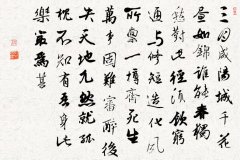 三月咸陽城千花
晝如錦誰能春獨
愁對此徑須飲窮
通與修短造化夙
所稟一樽齊死生
萬事固難審醉後
失天地兀然就孤
枕不知有吾身此
樂最為甚